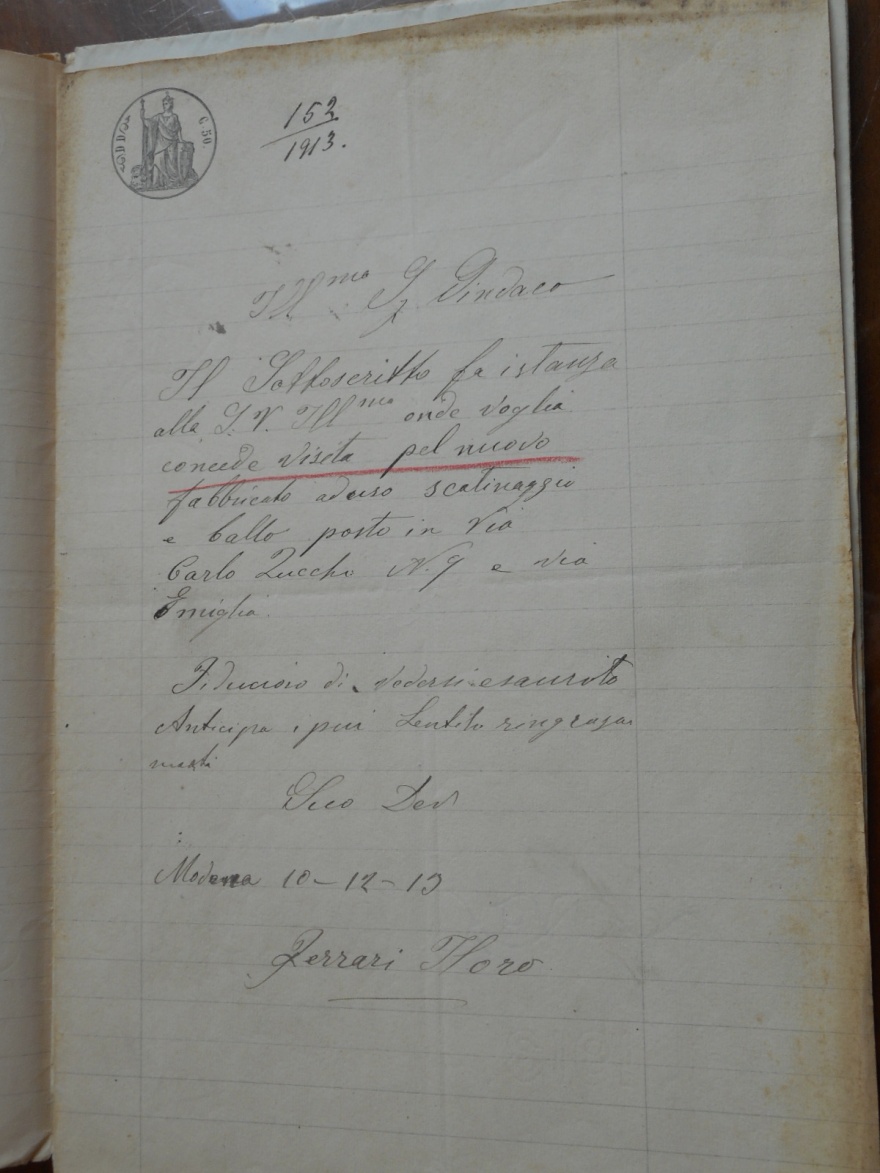 C. 50.
152
1913.
Ill.mo Sg Sindaco
Il Sottoscritto fa istanza
alla S. V. Ill.ma onde voglia
concede visita pel nuovo
fabbricato aduso scatinaggio
e ballo posto in Via
Carlo Zucchi N. 9 e via
Emiglia.
Fiducioso di vedersi esaurito
Anticipa i piu Sentiti ringrazia
menti
Suo Dev
Modena 10-12-13
Ferrari Floro